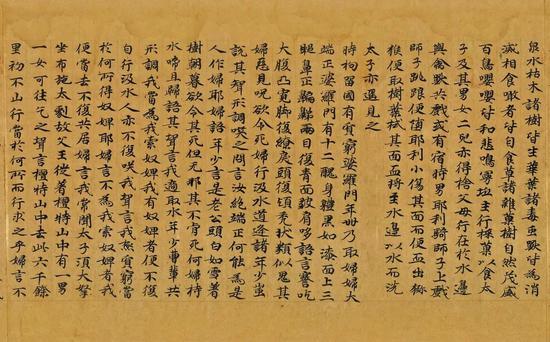 泉水枯木諸樹皆生華葉諸毒虫獸皆為消
滅相食噉者皆自食草諸雜菓樹自然茂盛
百鳥嚶嚶皆和悲鳴曼坻主行採菓以食太
子及其男女二兒亦得捨父母行在於水邊
與禽獸共戲或有宿時男耶利騎師子上戲
師子跳踉便墮耶利小傷其面而便血出獼
猴便取樹葉拭其面血將至水邊以水而洗
太子亦遥見之
時拘留國有貧窮婆羅門年卌乃取婦婦大
端正婆羅門有十二醜身體黑如漆面上三
鼻正匾兩目復青面皺有哆語言謇吃
大腹凸臗脚復繚戾頭復秃狀類似鬼其
婦惡見呪欲令死婦行汲水道逢諸年少蚩
說其聟形調咲之問言汝絶端正何能為是
人作婦耶婦語年少言是老公頭白如雪著
樹朝暮欲令其死但无那其不肯死何婦持
水啼且歸語其聟言我適取水年少曹輩共
形調我當為我索奴婢我有奴婢者便不復
自行汲水人亦不復咲我聟言我㷱貧窮當
於何所得奴婢耶婦言不為我索奴婢者我
便當去不復共居婦言我常聞太子須大拏
坐布施太劇故父王徙著檀特山中有一男
一女可往乞之聟言檀特山中去此六千餘
里初不山行當於何所而行求之乎婦言不